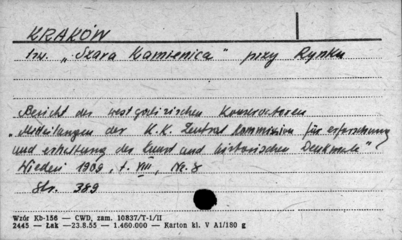 KRAKÓW
tzw. „Szara Kamienica" przy Rynku
Bericht der westgalizischen Konservatoren
„Mitteilungen der K.K. Zentral Kommission für erforschung
und erhaltung der kunst und historischen Denkmale"
Wiedeń 1909, t. VIII, Nr. 8
Str. 389
Wzór Kb-156 — CWD, zam. 10837/T-I/II
2445 — Łak —23.8.55 — 1.460.000 — Karton kl. V A1/180 g